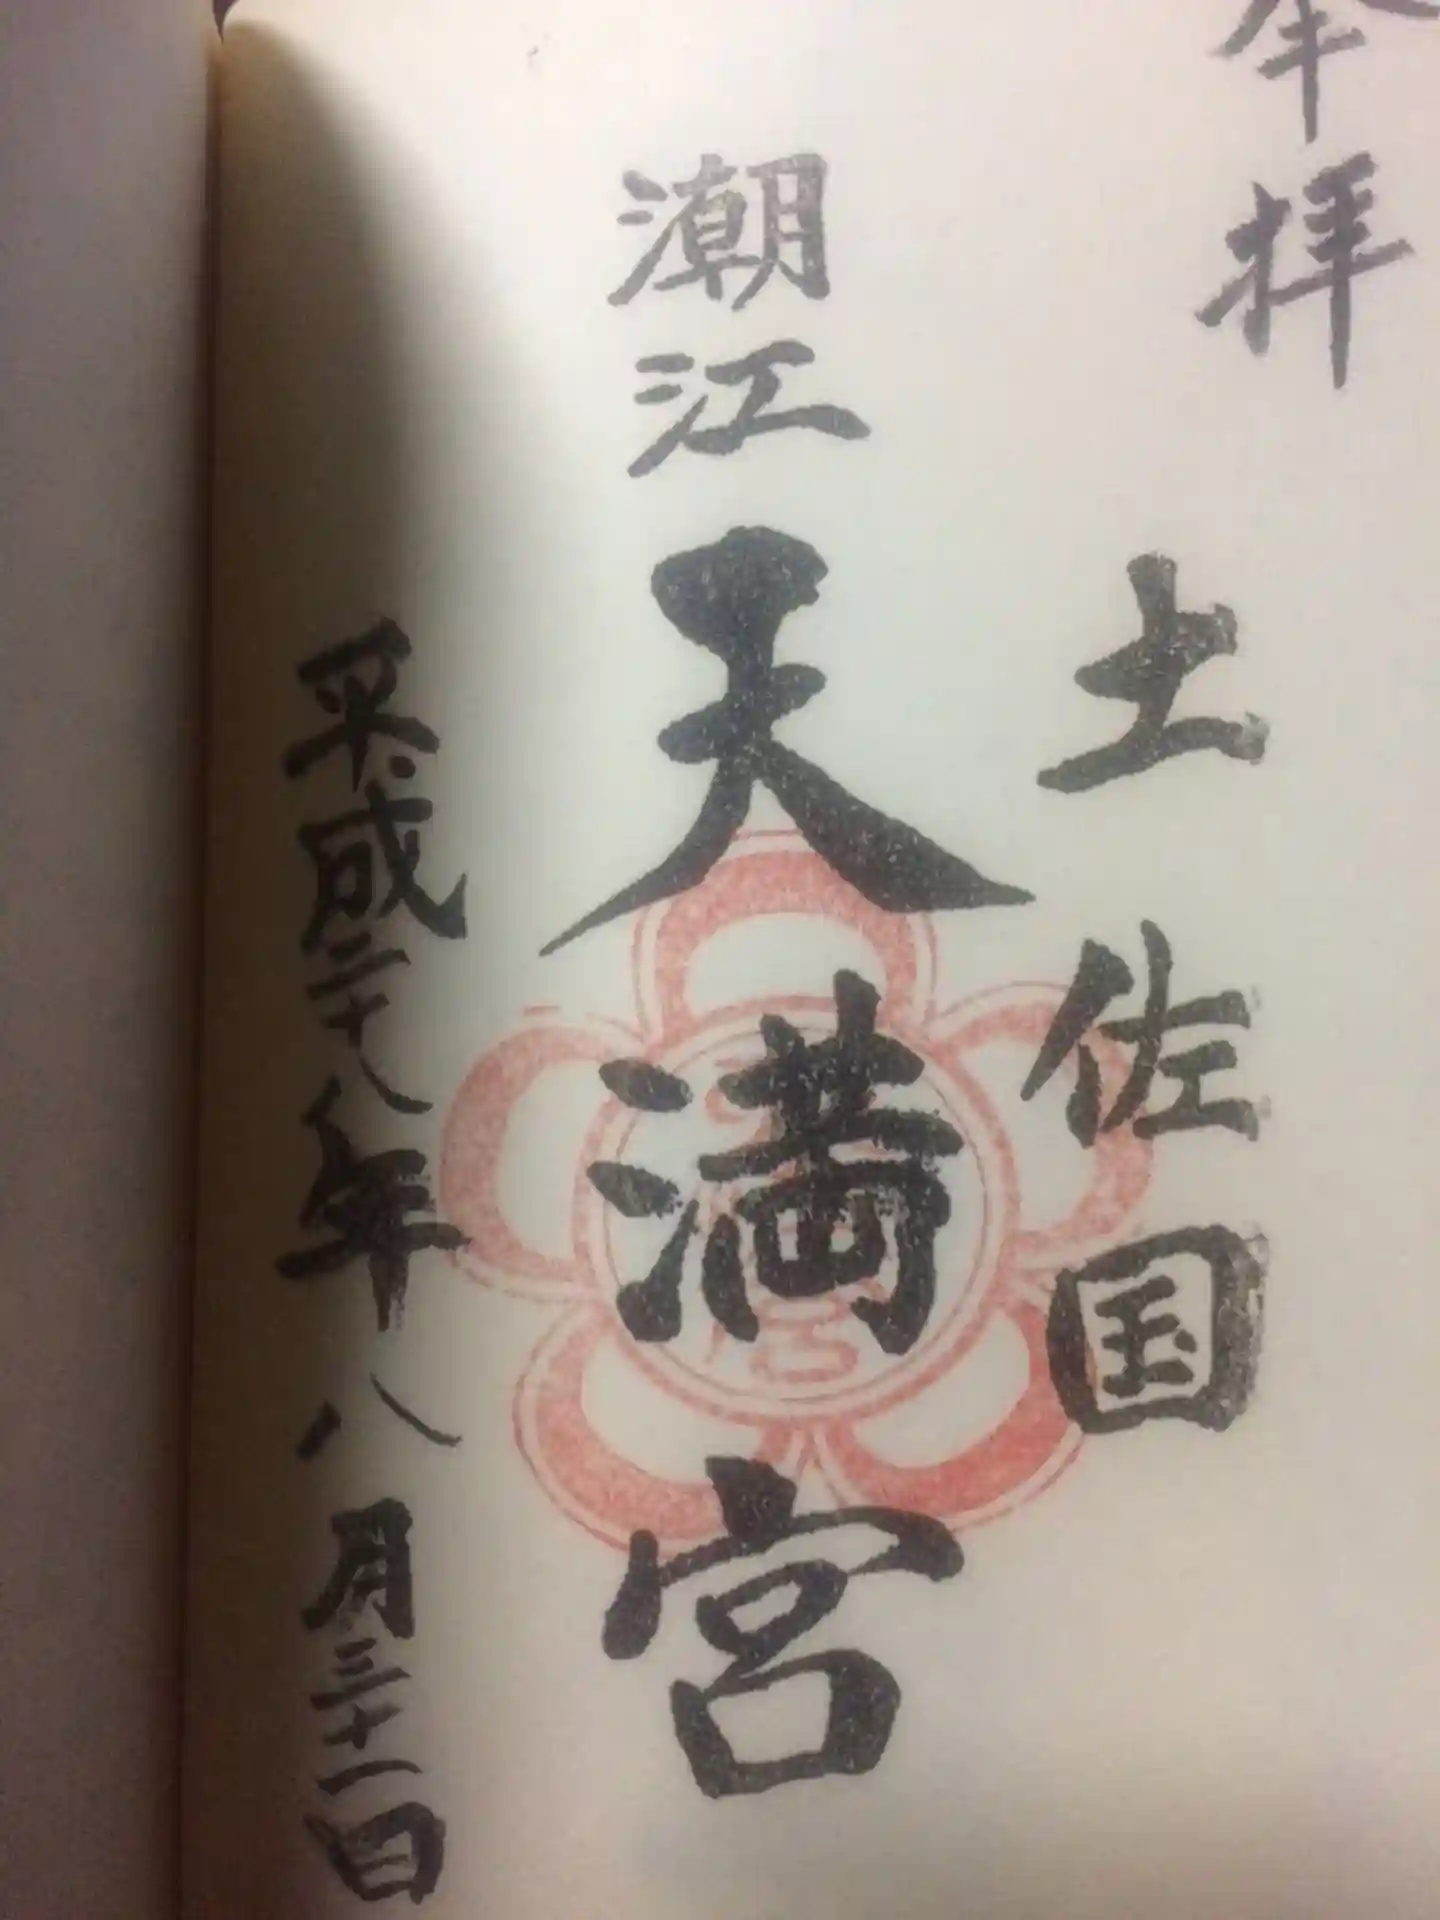 奉拝
土佐国
潮江天満宮
平成二十八年八月三十一日